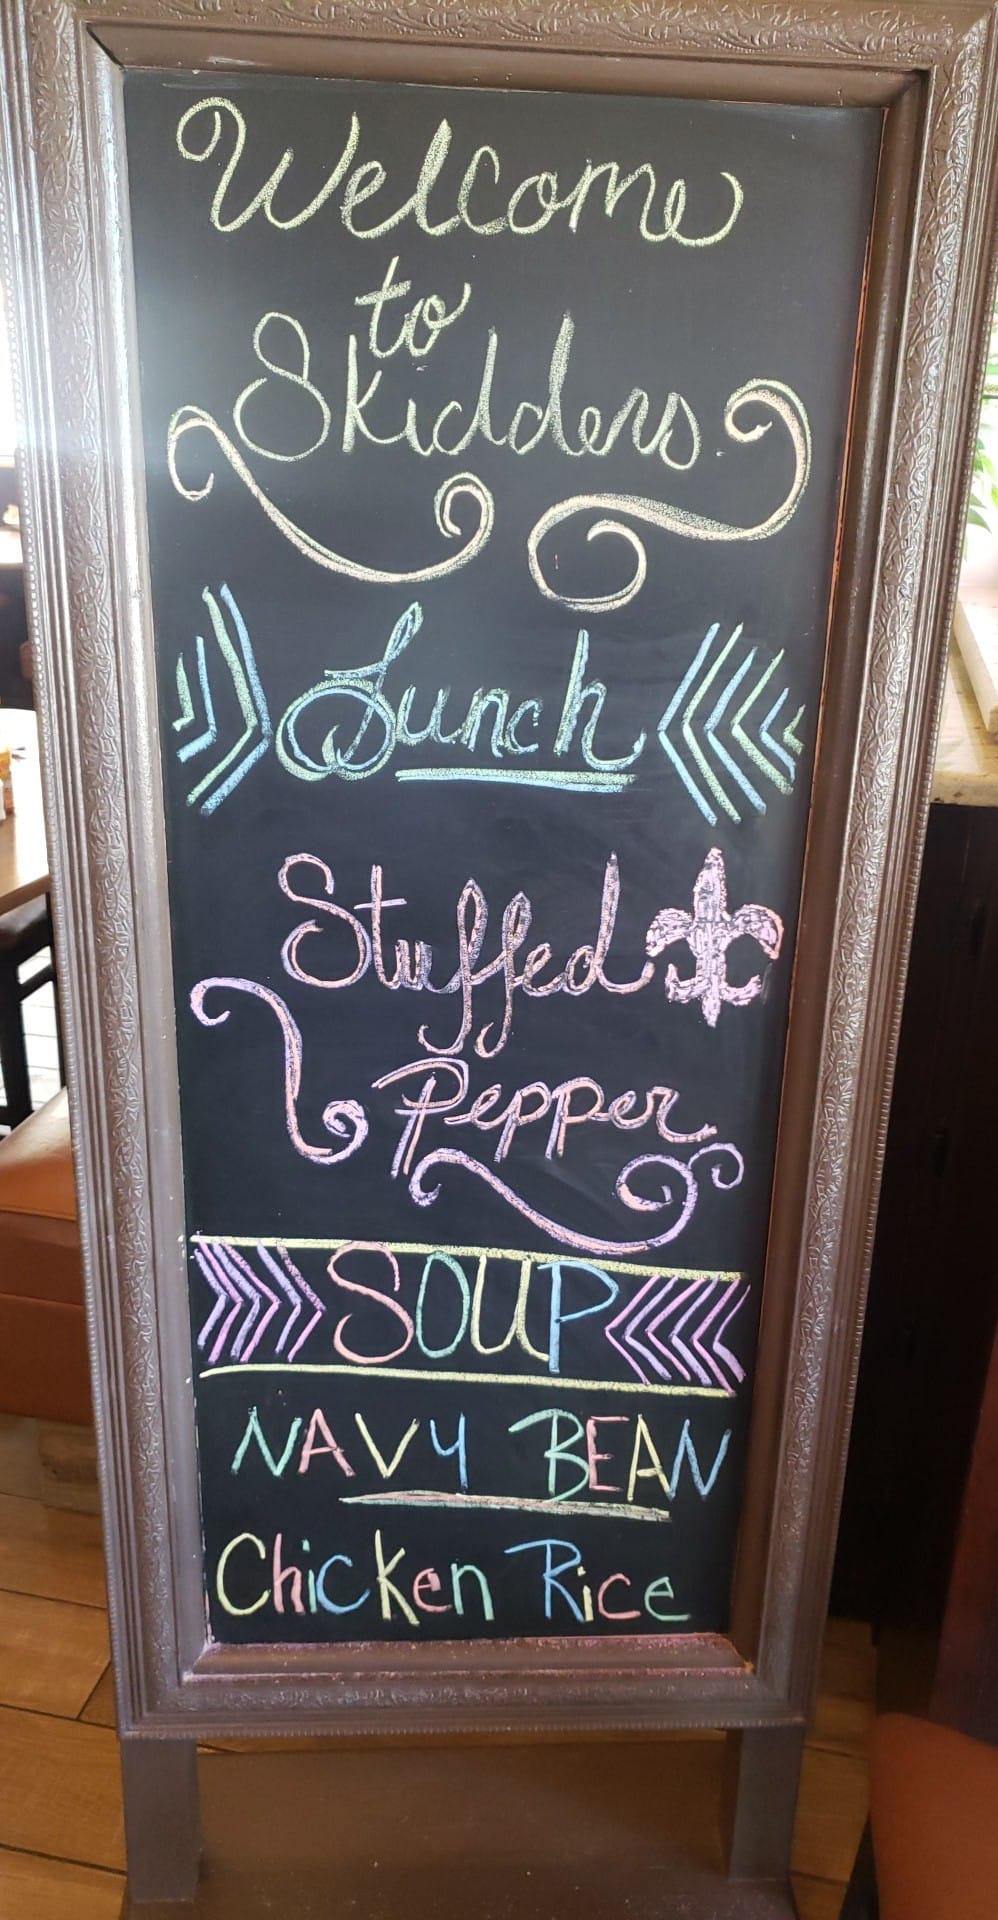 Welcome
to
Skidders
Lunch
Stuffed
Pepper
SOUP
NAVY BEAN
Chicken Rice